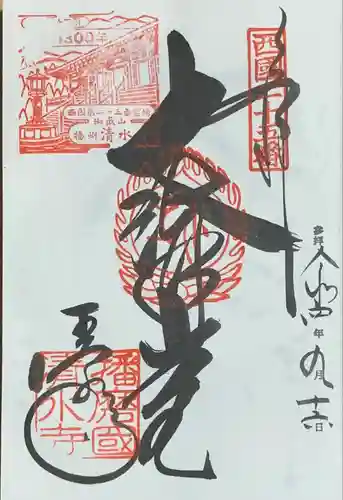 西國二十五番
參拜 令和四年九月 日
大講堂
1300年
西国第二十五番霊場
御嶽山
播州清水
播磨國
清水寺